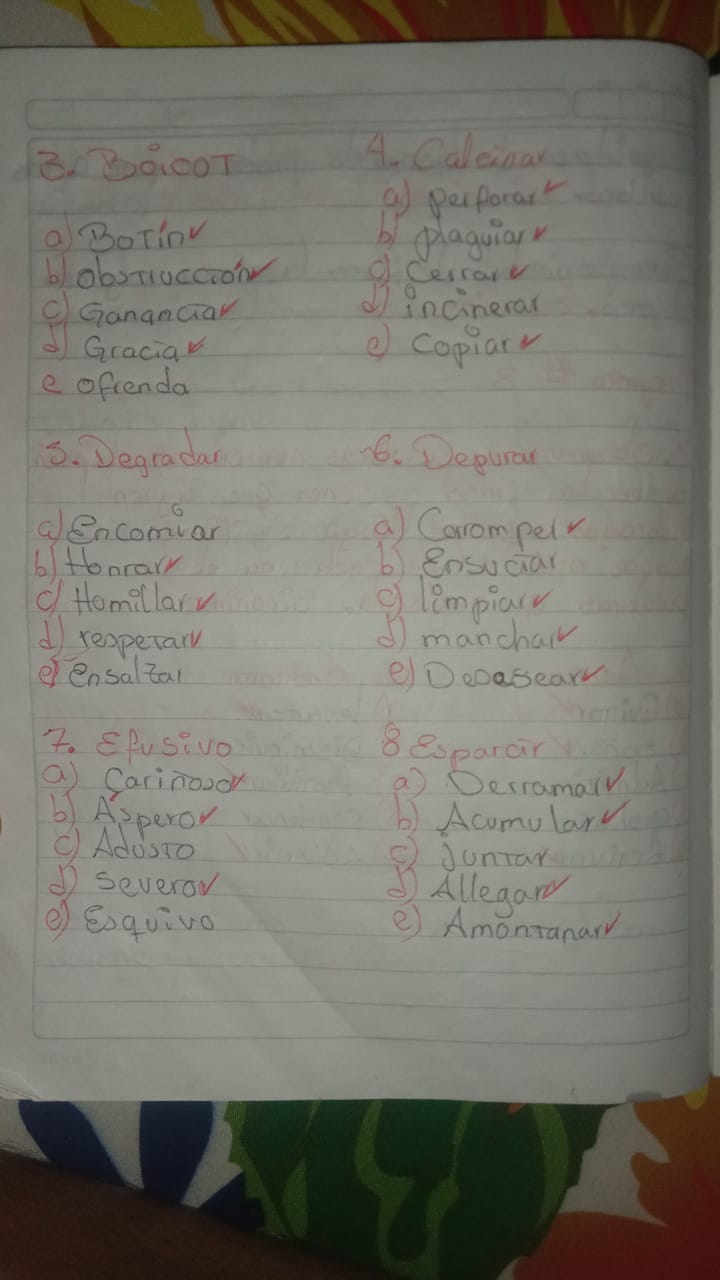 3. BOICOT
a) BoTín
b) obsTrucción
c) Ganancia
d) Gracia
e ofrenda
4. Calcinar
a) perforar
b) plaguiar
c) Cerrar
d) incinerar
e) Copiar
5. Degradar
a) Encomiar
b) Honrar
c) Homillar
d) respeTar
e) ensalzar
6. Depurar
a) Corromper
b) Ensuciar
c) limpiar
d) manchar
e) Desasear
7. Efusivo
a) Cariñoso
b) Áspero
c) AdusTo
d) severo
e) Esquivo
8 Esparcir
a) Derramar
b) Acumular
c) JunTar
d) Allegar
e) AmonTanar